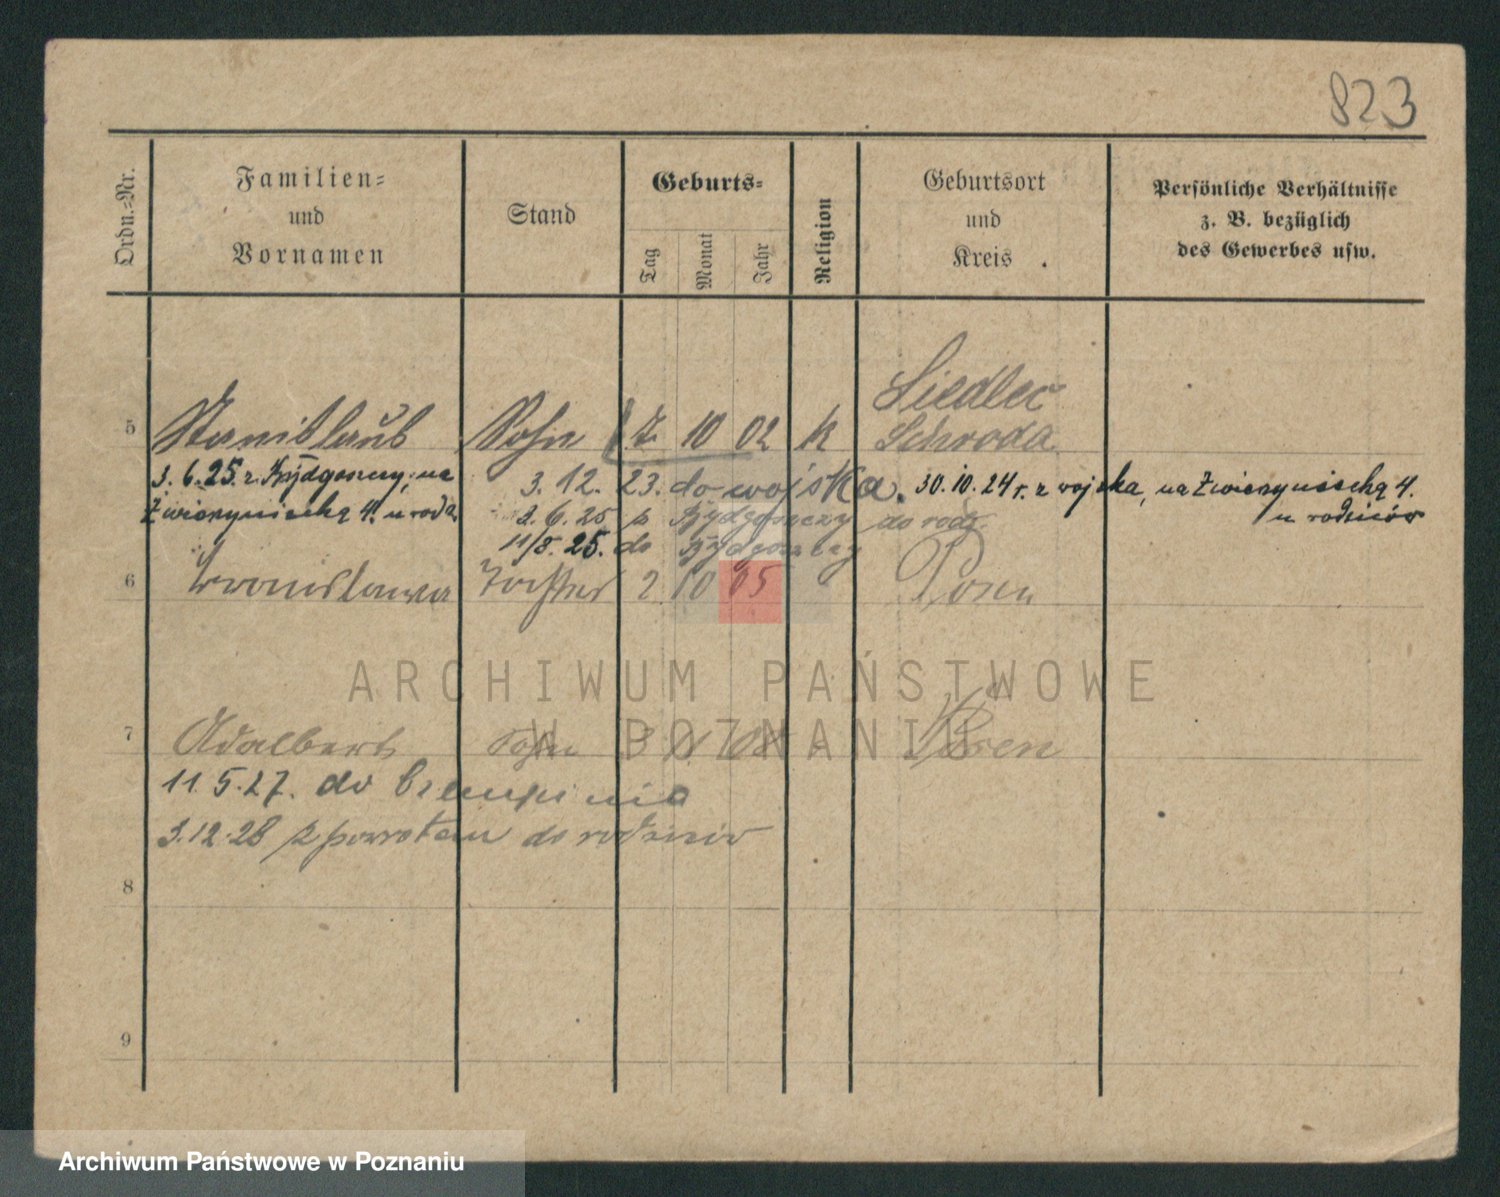 823
Ordn.-Nr.
Familien-
und
Vornamen
Stand
Geburts-
Tag
Monat
Jahr
Religion
Geburtsort
und
Kreis
Persönliche Verhältnisse
z. B. bezüglich
des Gewerbes usw.
5 Stanislaus Sohn 7. 10 02 k Siedlec
Schroda
3. 6. 25. z Bydgoszczy, na
Zwierzyniecką 4. u rodz.
3. 12. 23. do wojska. 30. 10. 24 r. z wojska, na Zwierzyniecką 4.
u rodziców
3. 6. 25 z Bydgoszczy do rodz.
11/8. 25. do Bydgoszczy
6 Bronislawa Tochter 2 10 05 Posen
7 Adalbert Sohn Posen
11. 5. 27. do
3. 12. 28 z powrotem do rodziców
8
9
ARCHIWUM PAŃSTWOWE
W POZNANIU
Archiwum Państwowe w Poznaniu